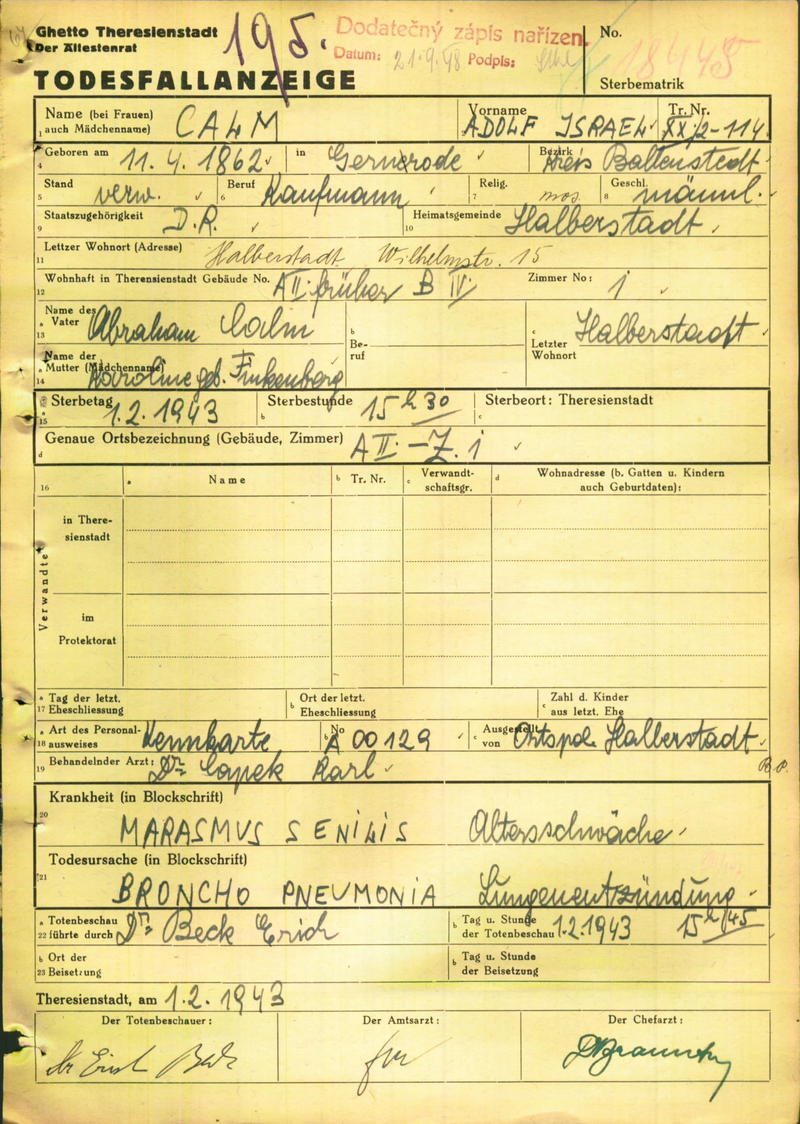 Ghetto Theresienstadt
Der Ältestenrat
195.
Dodatečný zápis nařízen.
Datum: 21.9.48 Podpis:
No.
18445
TODESFALLANZEIGE
Sterbematrik
Name (bei Frauen) CALM Vorname ADOLF ISRAEL Tr. Nr. XX/2-114.
1 auch Mädchenname)
4 Geboren am 11. 4. 1862 in Gernerode Bezirk Kreis Ballenstedt
5 Stand verw. 6 Beruf Kaufmann 7 Relig. mos. 8 Geschl. männl.
9 Staatszugehörigkeit D.R. 10 Heimatsgemeinde Halberstadt
11 Letzter Wohnort (Adresse) Halberstadt Wilhelmstr. 15
12 Wohnhaft in Theresienstadt Gebäude No. A II. früher B IV. Zimmer No: 1
13 a Name des Vater Abraham Calm b Beruf c Letzter Wohnort Halberstadt
14 a Name der Mutter (Mädchenname) Karoline geb. Finkenberg
15 a Sterbetag 1.2.1943 b Sterbestunde 15 h 30 c Sterbeort: Theresienstadt
d Genaue Ortsbezeichnung (Gebäude, Zimmer) A II. - Z. 1
16 a Name b Tr. Nr. c Verwandtschaftsgr. d Wohnadresse (b. Gatten u. Kindern auch Geburtdaten):
Verwandte
in Theresienstadt
im Protektorat
17 a Tag der letzt. Eheschliessung b Ort der letzt. Eheschliessung c Zahl d. Kinder aus letzt. Ehe
18 a Art des Personalausweises Kennkarte b No A 00129 c Ausgestellt von Ortspol. Halberstadt
19 Behandelnder Arzt: Dr. Capek Karl
B.P.
20 Krankheit (in Blockschrift)
MARASMUS SENILIS Altersschwäche
21 Todesursache (in Blockschrift)
BRONCHO PNEUMONIA Lungenentzündung
22 a Totenbeschau führte durch Dr. Beck Erich b Tag u. Stunde der Totenbeschau 1.2.1943 15 h/45
23 b Ort der Beisetzung b Tag u. Stunde der Beisetzung
Theresienstadt, am 1.2.1943
Der Totenbeschauer: Der Amtsarzt: Der Chefarzt:
Dr Erich Beck